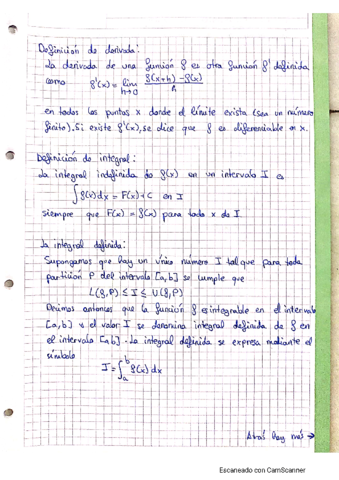 Definición de derivada:
La derivada de una función f es otra función f' definida
como f'(x) = lim h→0 f(x+h) - f(x) / h
en todos los puntos x donde el límite exista (sea un número
finito). Si existe f'(x), se dice que f es diferenciable en x.
Definición de integral:
La integral indefinida de f(x) en un intervalo I es
∫ f(x) dx = F(x) + C en I
siempre que F(x) = f(x) para todo x de I.
La integral definida:
Supongamos que hay un único número I tal que para toda
partición P del intervalo [a, b] se cumple que
L(f, P) ≤ I ≤ U(f, P)
Decimos entonces que la función f es integrable en el intervalo
[a, b] y el valor I se denomina integral definida de f en
el intervalo [a b]. La integral definida se expresa mediante el
símbolo
I = ∫_a^b f(x) dx
Atrás hay más →
Escaneado con CamScanner